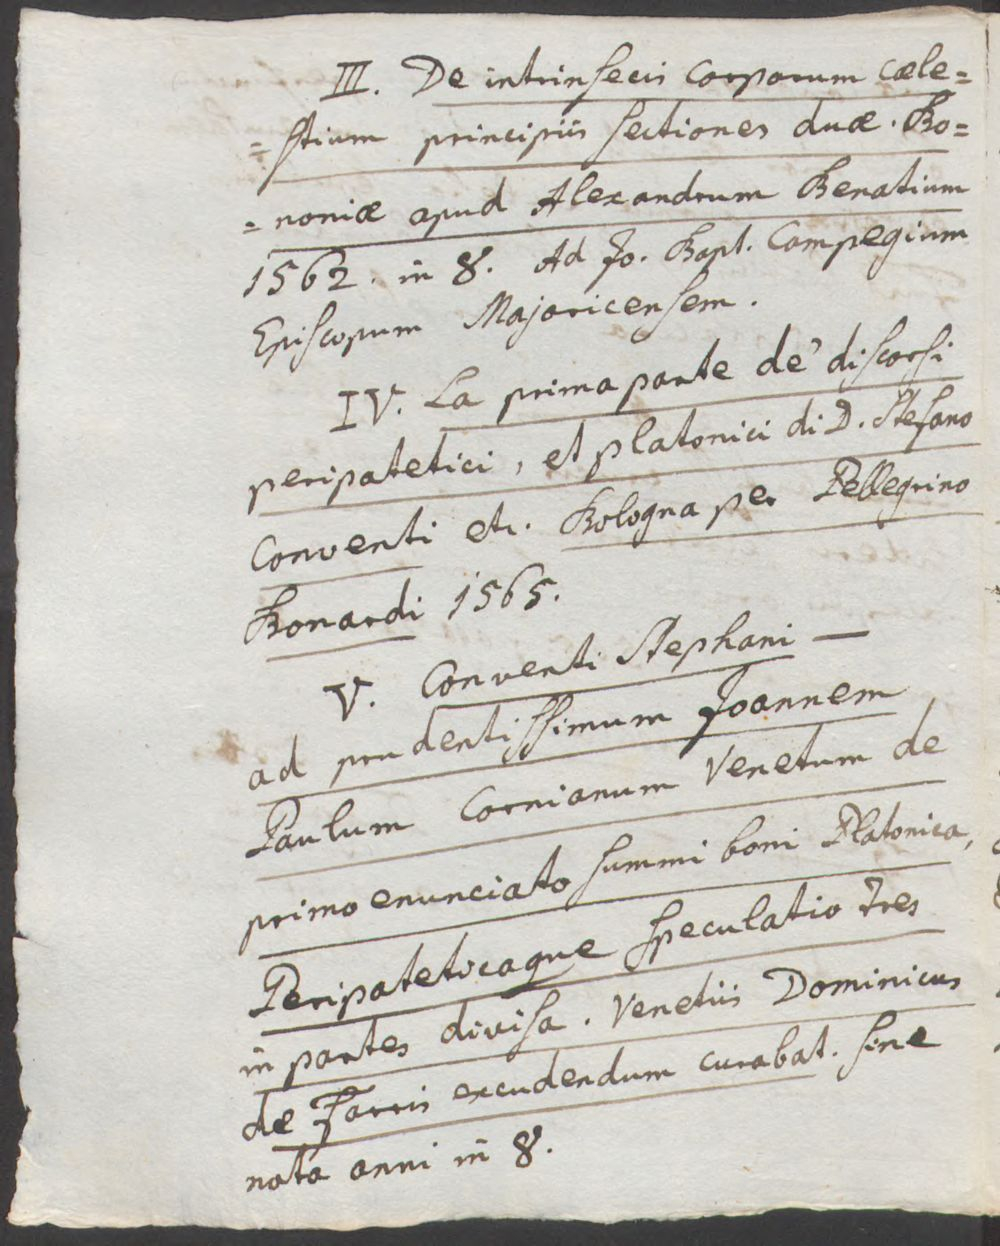 III. De intrinsecis corporum cæle=
=stium principiis sectiones duæ. Bo=
=noniæ apud Alexandrum Benatium
1562. in 8. Ad Jo. Bapt. Campegium
Episcopum Majoricensem.
IV. La prima parte de' discorsi
peripatetici, et platonici di D. Stefano
Conventi etc. Bologna per Pellegrino
Bonardi 1565.
V. Conventi Stephani —
ad prudentissimum Joannem
Paulum Cornianum Venetum de
primo enunciato summi boni Platonica,
Peripateticaque speculatio tres
in partes divisa. Venetiis Dominicus
de Farris excudendum curabat. sine
nota anni in 8.